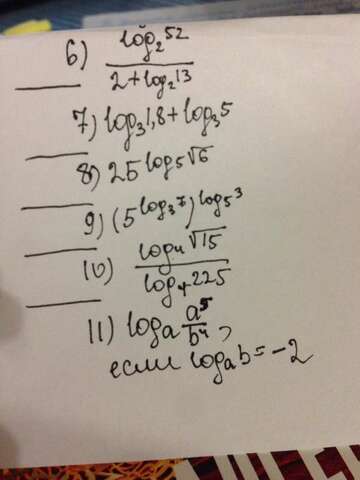 6) log₂52 / (2 + log₂13)
7) log₃1,8 + log₃5
8) 25^(log₅√6)
9) (5^(log₃7))^(log₅3)
10) log₄√15 / log₄225
11) logₐ a⁵/b⁴,
если logₐb = -2